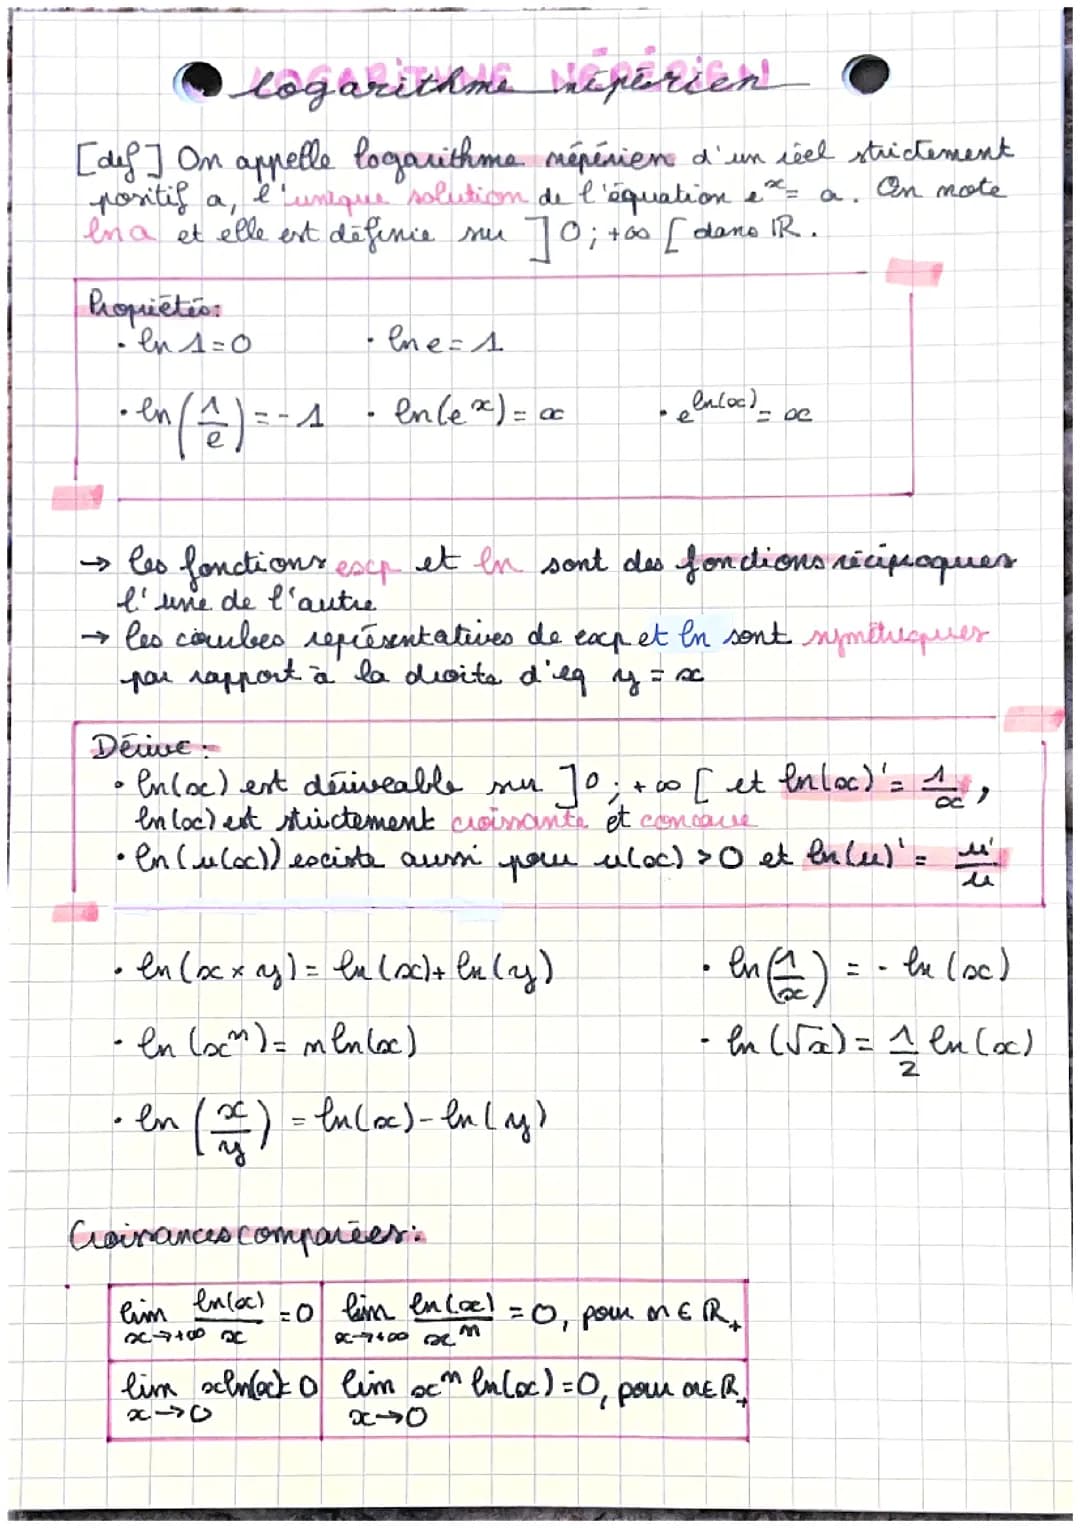 logarithme népérien
[def] On appelle logarithme népérien d'un réel strictement
positif a, l'unique solution de l'équation e^x = a. On note
ln a et elle est définie sur ]0; +∞[ dans ℝ.
Propriétés:
• ln 1 = 0 • ln e = 1
• ln(1/e) = -1 • ln(e^x) = x • e^ln(x) = x
→ les fonctions exp et ln sont des fonctions réciproques
l'une de l'autre
→ les courbes représentatives de exp et ln sont symétriques
par rapport à la droite d'eq y = x
Dérivé :
• ln(x) est dériveable sur ]0; +∞[ et ln(x)' = 1/x,
ln(x) est strictement croissante et concave
• ln(u(x)) existe aussi pour u(x) > 0 et ln(u)' = u'/u
• ln(x × y) = ln(x) + ln(y) • ln(1/x) = - ln(x)
• ln(x^n) = n ln(x) • ln(√x) = 1/2 ln(x)
• ln(x/y) = ln(x) - ln(y)
Croissances comparées:
lim x→+∞ ln(x)/x = 0 lim x→+∞ ln(x)/x^n = 0, pour n ∈ ℝ+
lim x→0 x ln(x) = 0 lim x→0 x^n ln(x) = 0, pour n ∈ ℝ+